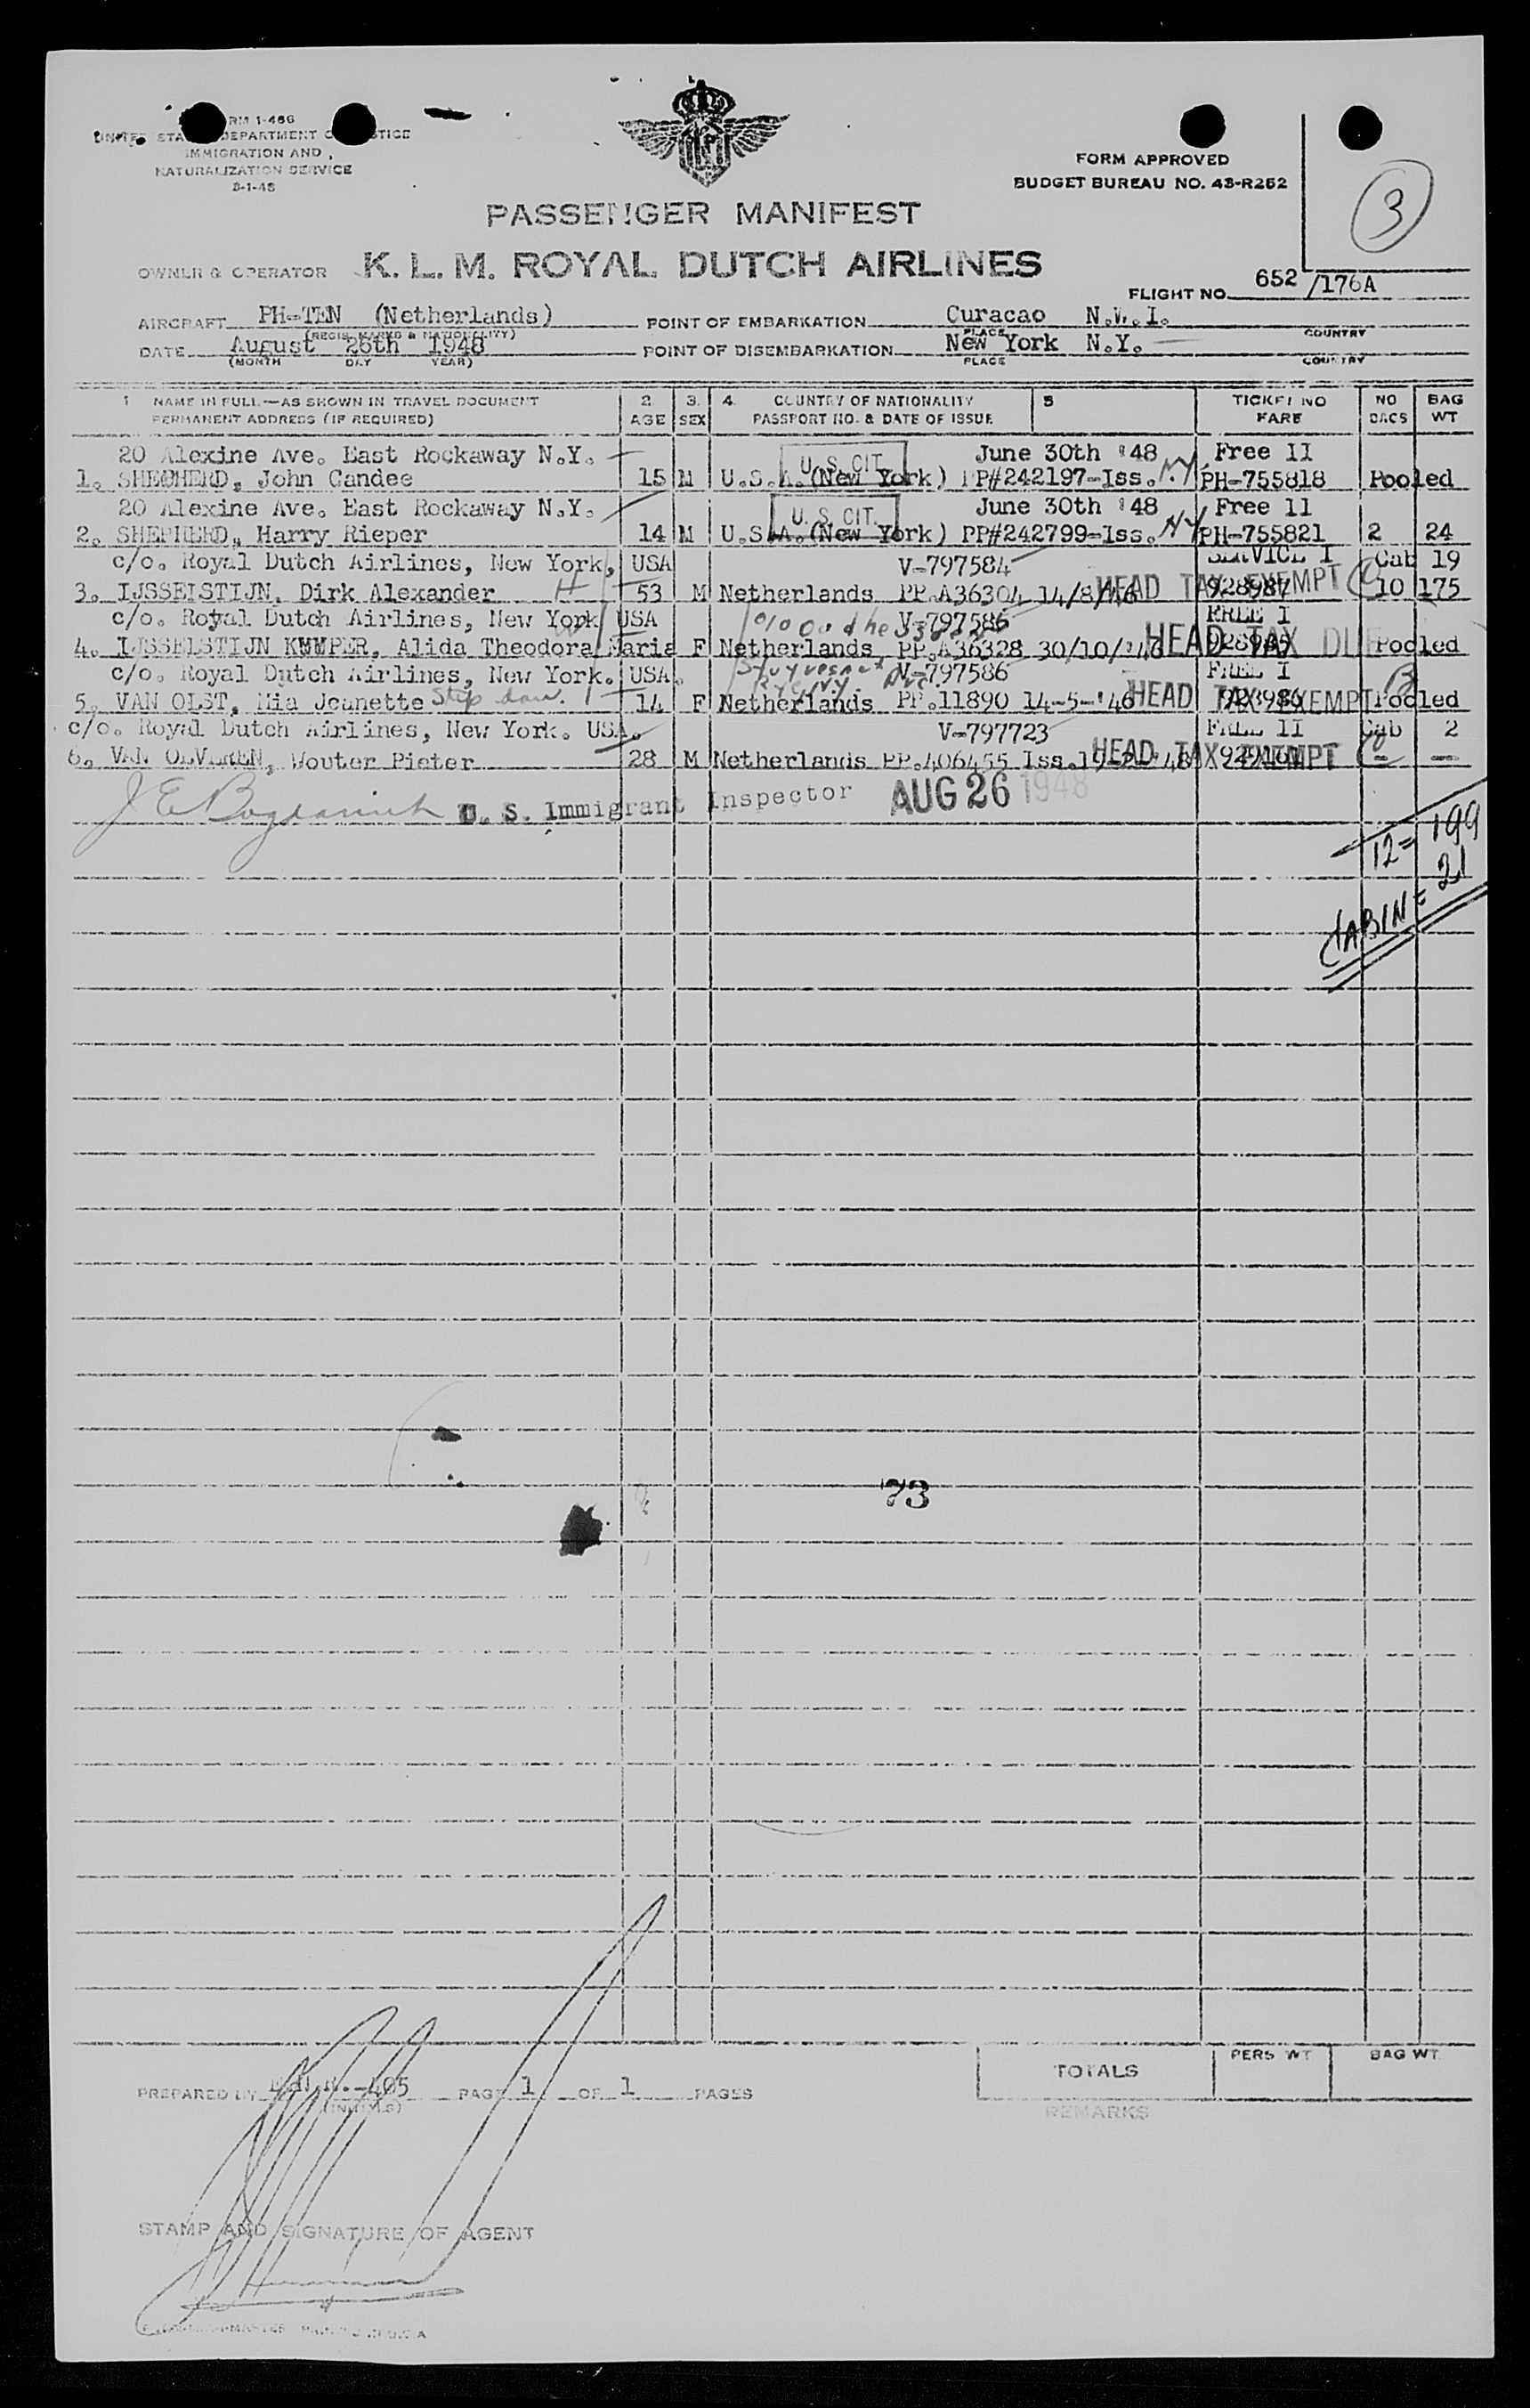 RM 1-466
UNITED STA DEPARTMENT O STICE
IMMIGRATION AND
NATURALIZATION SERVICE
FORM APPROVED
BUDGET BUREAU NO. 43-R252
3
PASSENGER MANIFEST
OWNER & OPERATOR K. L. M. ROYAL DUTCH AIRLINES
FLIGHT NO. 652/176A
AIRCRAFT PH-TEN (Netherlands) POINT OF EMBARKATION Curacao N.W.I.
(REGIS. MARKS & NATIONALITY) PLACE COUNTRY
DATE August 26th 1948 POINT OF DISEMBARKATION New York N.Y.
(MONTH DAY YEAR) PLACE COUNTRY
1 NAME IN FULL—AS SHOWN IN TRAVEL DOCUMENT 2. 3. 4. COUNTRY OF NATIONALITY 5 TICKET NO NO BAG
PERMANENT ADDRESS (IF REQUIRED) AGE SEX PASSPORT NO. & DATE OF ISSUE FARE BAGS WT
20 Alexine Ave. East Rockaway N.Y. U. S. CIT. June 30th '48 Free 11
1. SHEPHERD, John Candee 15 M U.S.A. (New York) PP#242197-Iss. N.Y. PH-755818 Pooled
20 Alexine Ave. East Rockaway N.Y. U. S. CIT. June 30th '48 Free 11
2. SHEPHERD, Harry Rieper 14 M U.S.A. (New York) PP#242799-Iss. NY PH-755821 2 24
c/o. Royal Dutch Airlines, New York, USA V-797584 SERVICE I Cab 19
3. IJSSELSTIJN, Dirk Alexander H 53 M Netherlands PP.A36304 14/8/'46 HEAD TAX EXEMPT 928987 10 175
c/o. Royal Dutch Airlines, New York USA V-797586 FREE I
4. IJSSELSTIJN KUYPER, Alida Theodora Maria F Netherlands PP.A36328 30/10/'46 HEAD TAX DUE 928985 Pooled
c/o. Royal Dutch Airlines, New York. USA. Stuyvesant Ave V-797586 FREE I
5. VAN OLST, Mia Jeanette Step dau. 14 F Netherlands Rye N.Y. PP.11890 14-5-'46 HEAD TAX EXEMPT 928986 Pooled
c/o. Royal Dutch Airlines, New York. USA. V-797723 FREE II Cab 2
6. VAN OEVEREN, Wouter Pieter 28 M Netherlands PP.406455 Iss. HEAD TAX EXEMPT - -
U. S. Immigrant Inspector AUG 26 1948
12= 199
CABIN = 21
73
TOTALS PERS WT BAG WT
PREPARED BY -405 PAGE 1 OF 1 PAGES
(INITIALS)
REMARKS
STAMP AND SIGNATURE OF AGENT